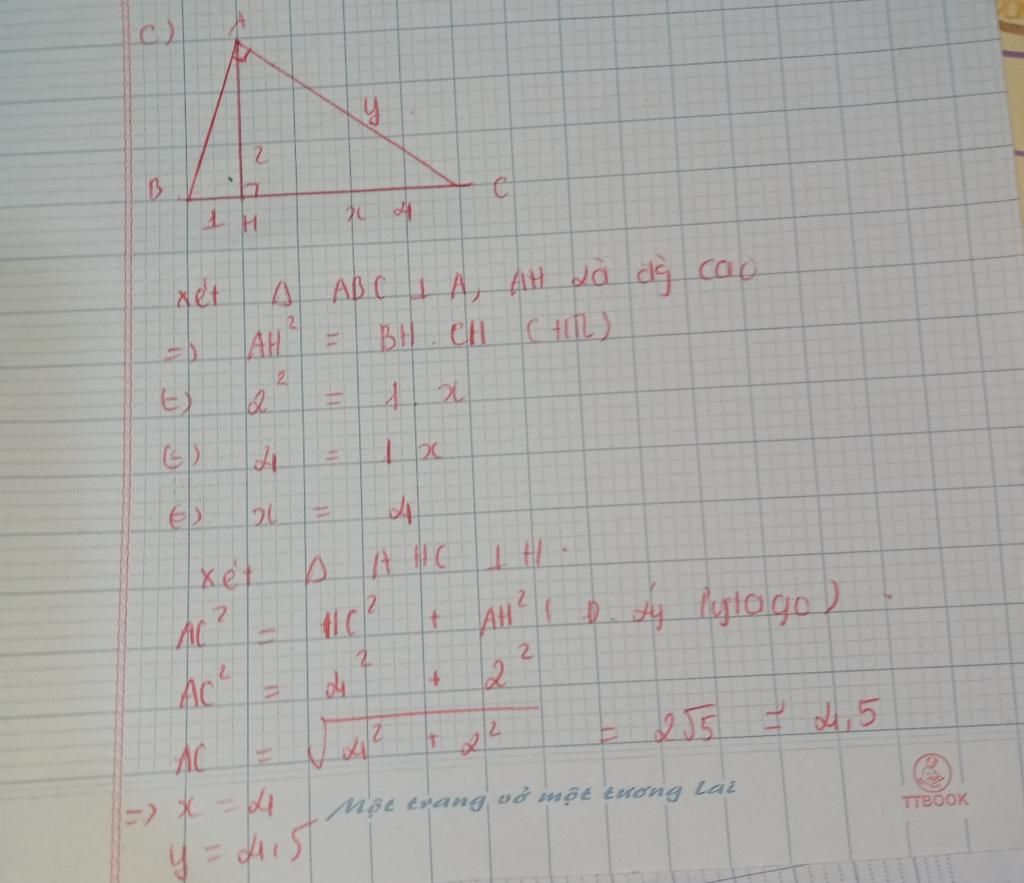 c)
A
y
2
B
C
1 H x 4
xét Δ ABC ⊥ A, AH là đg cao
=> AH² = BH . CH (HTL)
<=> 2² = 1 . x
<=> 4 = 1 x
<=> x = 4
xét Δ AHC ⊥ H .
AC² = HC² + AH² ( Đ. lý Pytago )
AC² = 4² + 2²
AC = √4² + 2² = 2√5 ≈ 4,5
=> x = 4
y = 4,5
Một trang vở một tương lai
TTBOOK